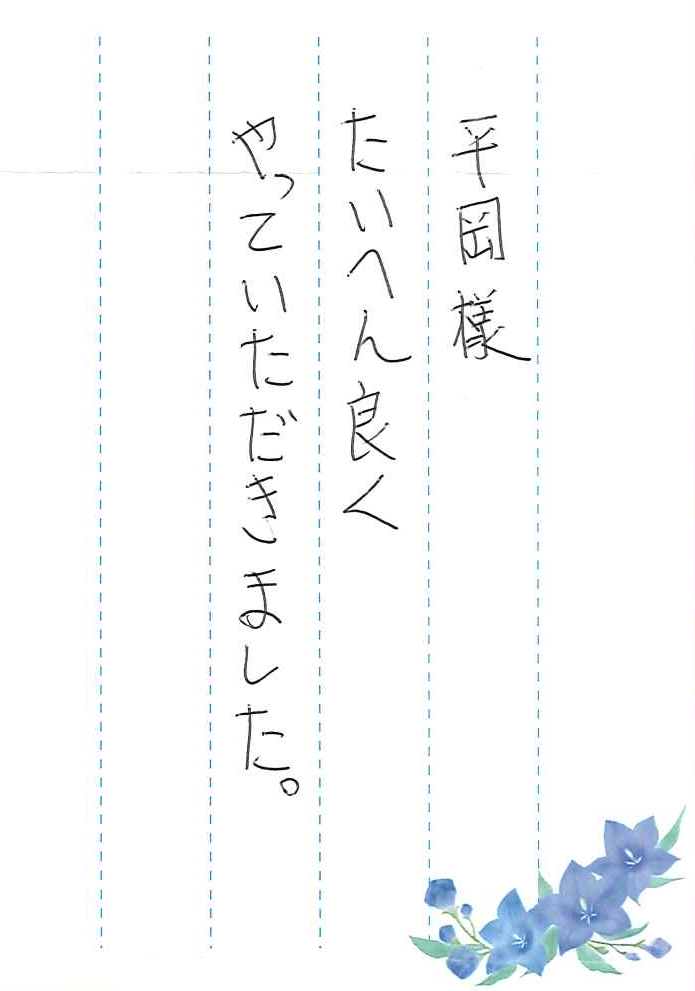 平岡様
たいへん良く
やっていただきました。